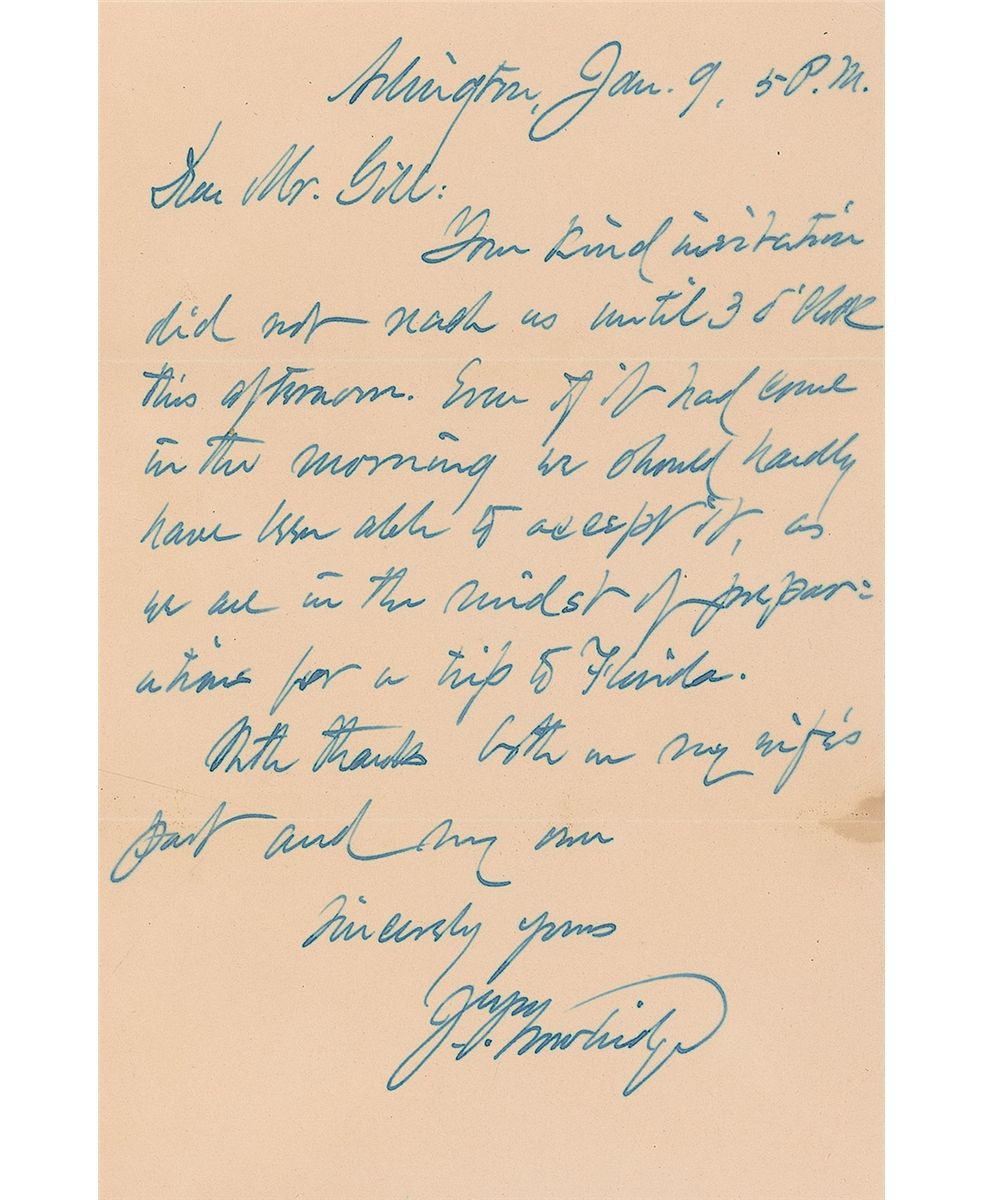 Arlington, Jan. 9, 5 P.M.
Dear Mr. Gill:
Your kind invitation
did not reach us until 3 o'clock
this afternoon. Even if it had come
in the morning we should hardly
have been able to accept it, as
we are in the midst of prepar=
ations for a trip to Florida.
With thanks both on my wife's
part and my own
Sincerely yours
J. T. Trowbridge